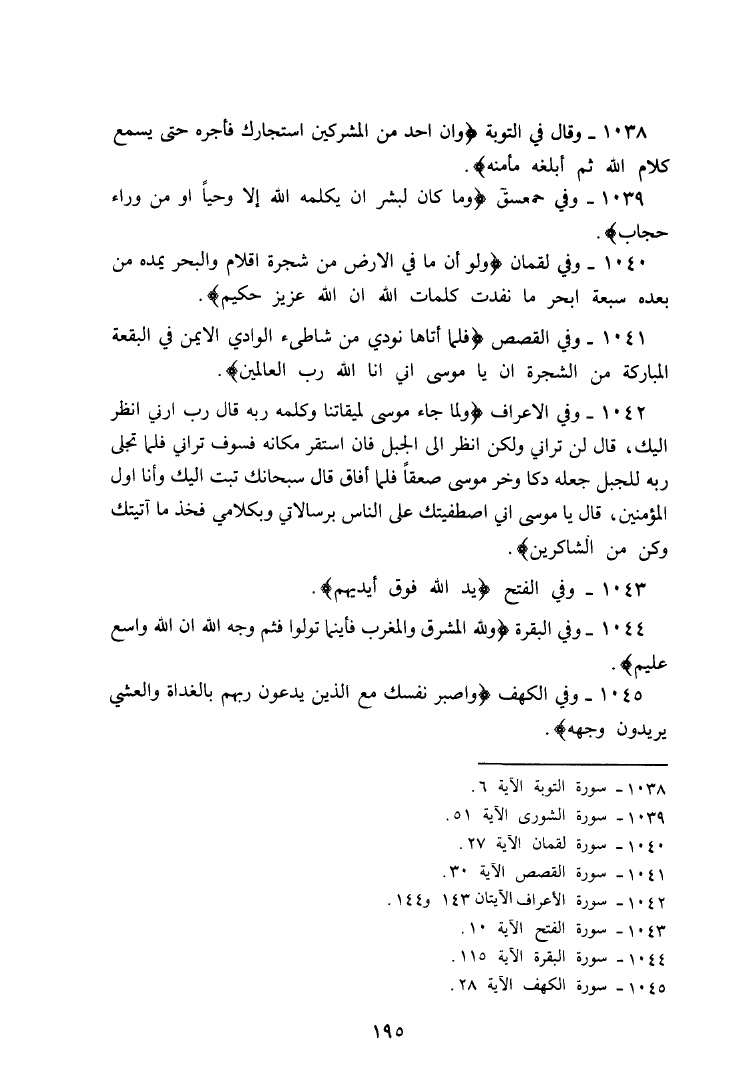 ١٠٣٨ ـ وقال في التوبة ﴿وان احد من المشركين استجارك فأجره حتى يسمع
كلام الله ثم أبلغه مأمنه﴾.
١٠٣٩ ـ وفي حمعسقۤ ﴿وما كان لبشر ان يكلمه الله إلا وحياً او من وراء
حجاب﴾.
١٠٤٠ ـ وفي لقمان ﴿ولو أن ما في الارض من شجرة اقلام والبحر يمده من
بعده سبعة ابحر ما نفدت كلمات الله ان الله عزيز حكيم﴾.
١٠٤١ ـ وفي القصص ﴿فلما أتاها نودي من شاطىء الوادي الايمن في البقعة
المباركة من الشجرة ان يا موسى اني انا الله رب العالمين﴾.
١٠٤٢ ـ وفي الاعراف ﴿ولما جاء موسى لميقاتنا وكلمه ربه قال رب ارني انظر
اليك، قال لن تراني ولكن انظر الى الجبل فان استقر مكانه فسوف تراني فلما تجلى
ربه للجبل جعله دكا وخر موسى صعقاً فلما أفاق قال سبحانك تبت اليك وأنا اول
المؤمنين، قال يا موسى اني اصطفيتك على الناس برسالاتي وبكلامي فخذ ما آتيتك
وكن من الشاكرين﴾.
١٠٤٣ ـ وفي الفتح ﴿يد الله فوق أيديهم﴾.
١٠٤٤ ـ وفي البقرة ﴿ولله المشرق والمغرب فأينما تولوا فثم وجه الله ان الله واسع
عليم﴾.
١٠٤٥ ـ وفي الكهف ﴿واصبر نفسك مع الذين يدعون ربهم بالغداة والعشي
يريدون وجهه﴾.
١٠٣٨ ـ سورة التوبة الآية ٦.
١٠٣٩ ـ سورة الشورى الآية ٥١.
١٠٤٠ ـ سورة لقمان الآية ٢٧.
١٠٤١ ـ سورة القصص الآية ٣٠.
١٠٤٢ ـ سورة الأعراف الآيتان ١٤٣ و١٤٤.
١٠٤٣ ـ سورة الفتح الآية ١٠.
١٠٤٤ ـ سورة البقرة الآية ١١٥.
١٠٤٥ ـ سورة الكهف الآية ٢٨.
١٩٥